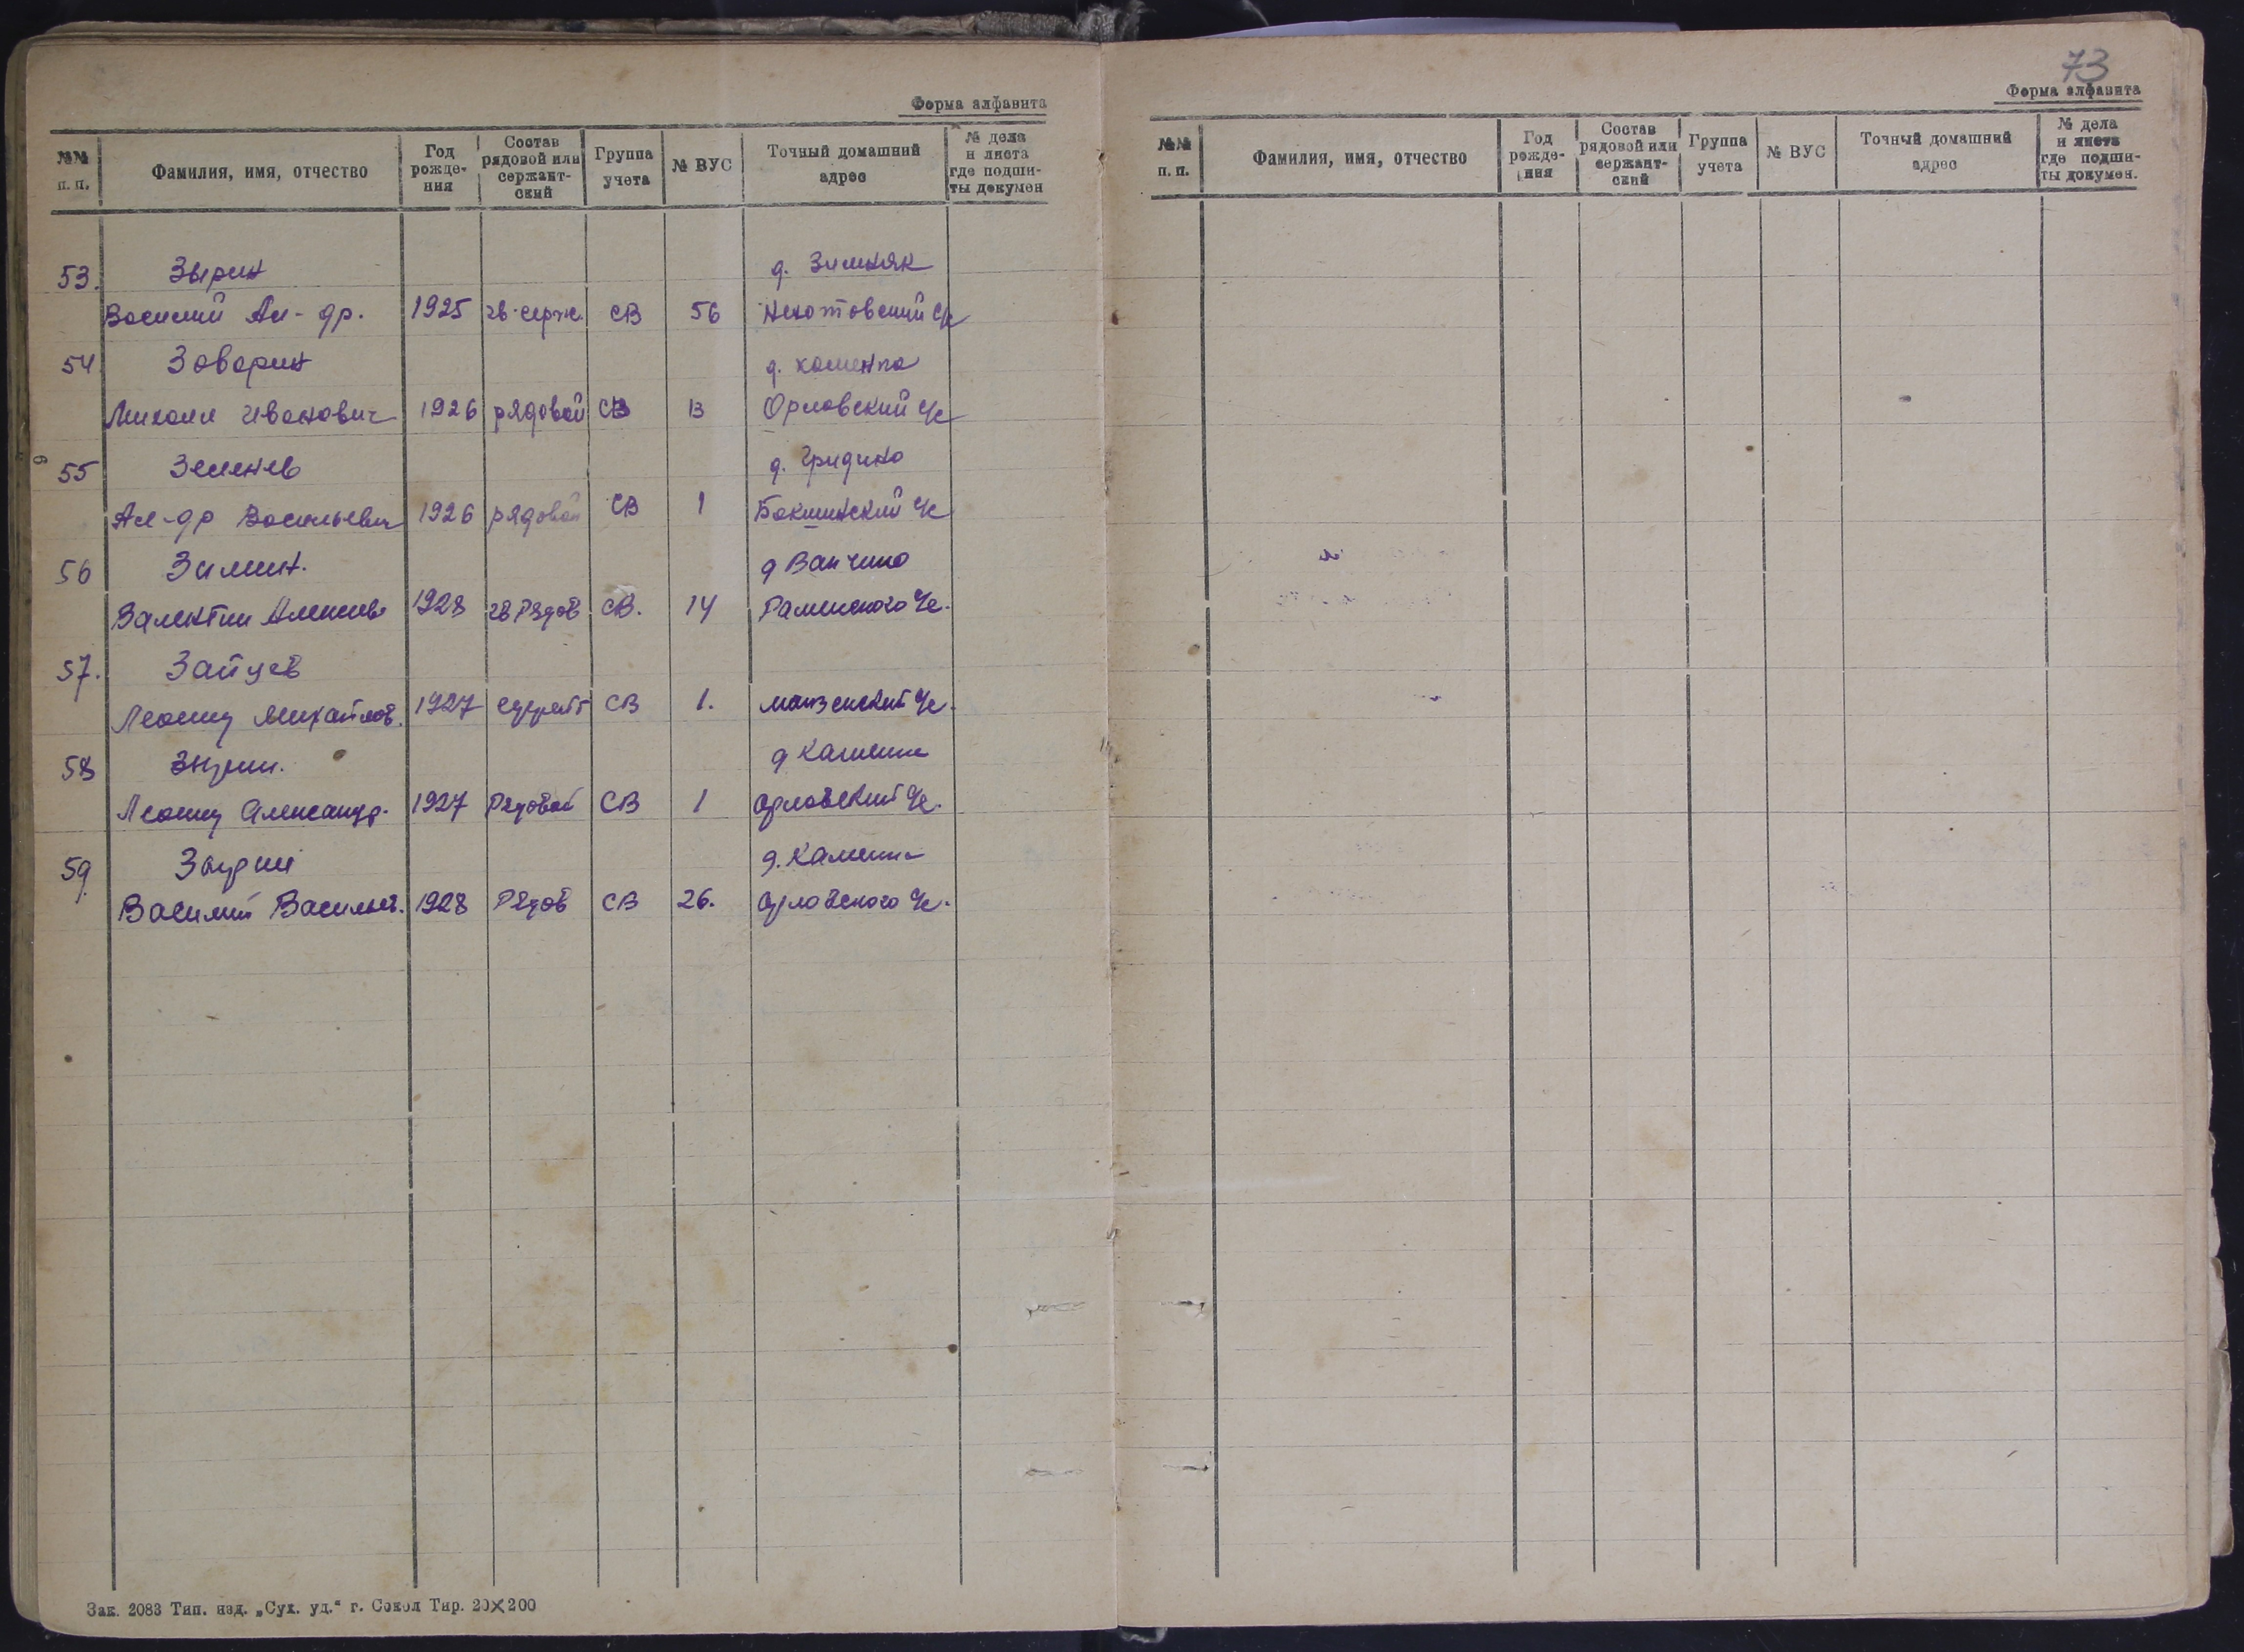 Форма алфавита
№№ п. п. Фамилия, имя, отчество Год рожде-ния Состав рядовой или сержант-ский Группа учета № ВУС Точный домашний адрес № дела и листа где подши-ты докумен
53. Зырин д. Зимняк
Василий Ал-др. 1925 гв. серж. СВ 56
54 Заварин д. Каменка
Михаил Иванович 1926 рядовой СВ 13 Орловский с/с
55 Зеленев д. Гридино
Ал-др Васильевич 1926 рядовой СВ 1 Бакшинский с/с
56 Зимин. д Ванчино
Валентин Алексеев 1928 гв Рядов СВ. 14 Раменского с/с.
57. Зайцев
Леонид Михайлов. 1927 СВ 1. с/с.
58 д Каменка
Леонид Александр. 1927 Рядовой СВ 1 Орловский с/с.
59 д. Каменка
Василий Васильев. 1928 Рядов СВ 26. Орловского с/с.
Зак. 2083 Тип. изд. „Сух. уд.“ г. Сокол Тир. 20×200
73
Форма алфавита
№№ п. п. Фамилия, имя, отчество Год рожде-ния Состав рядовой или сержант-ский Группа учета № ВУС Точный домашний адрес № дела и листа где подши-ты докумен.